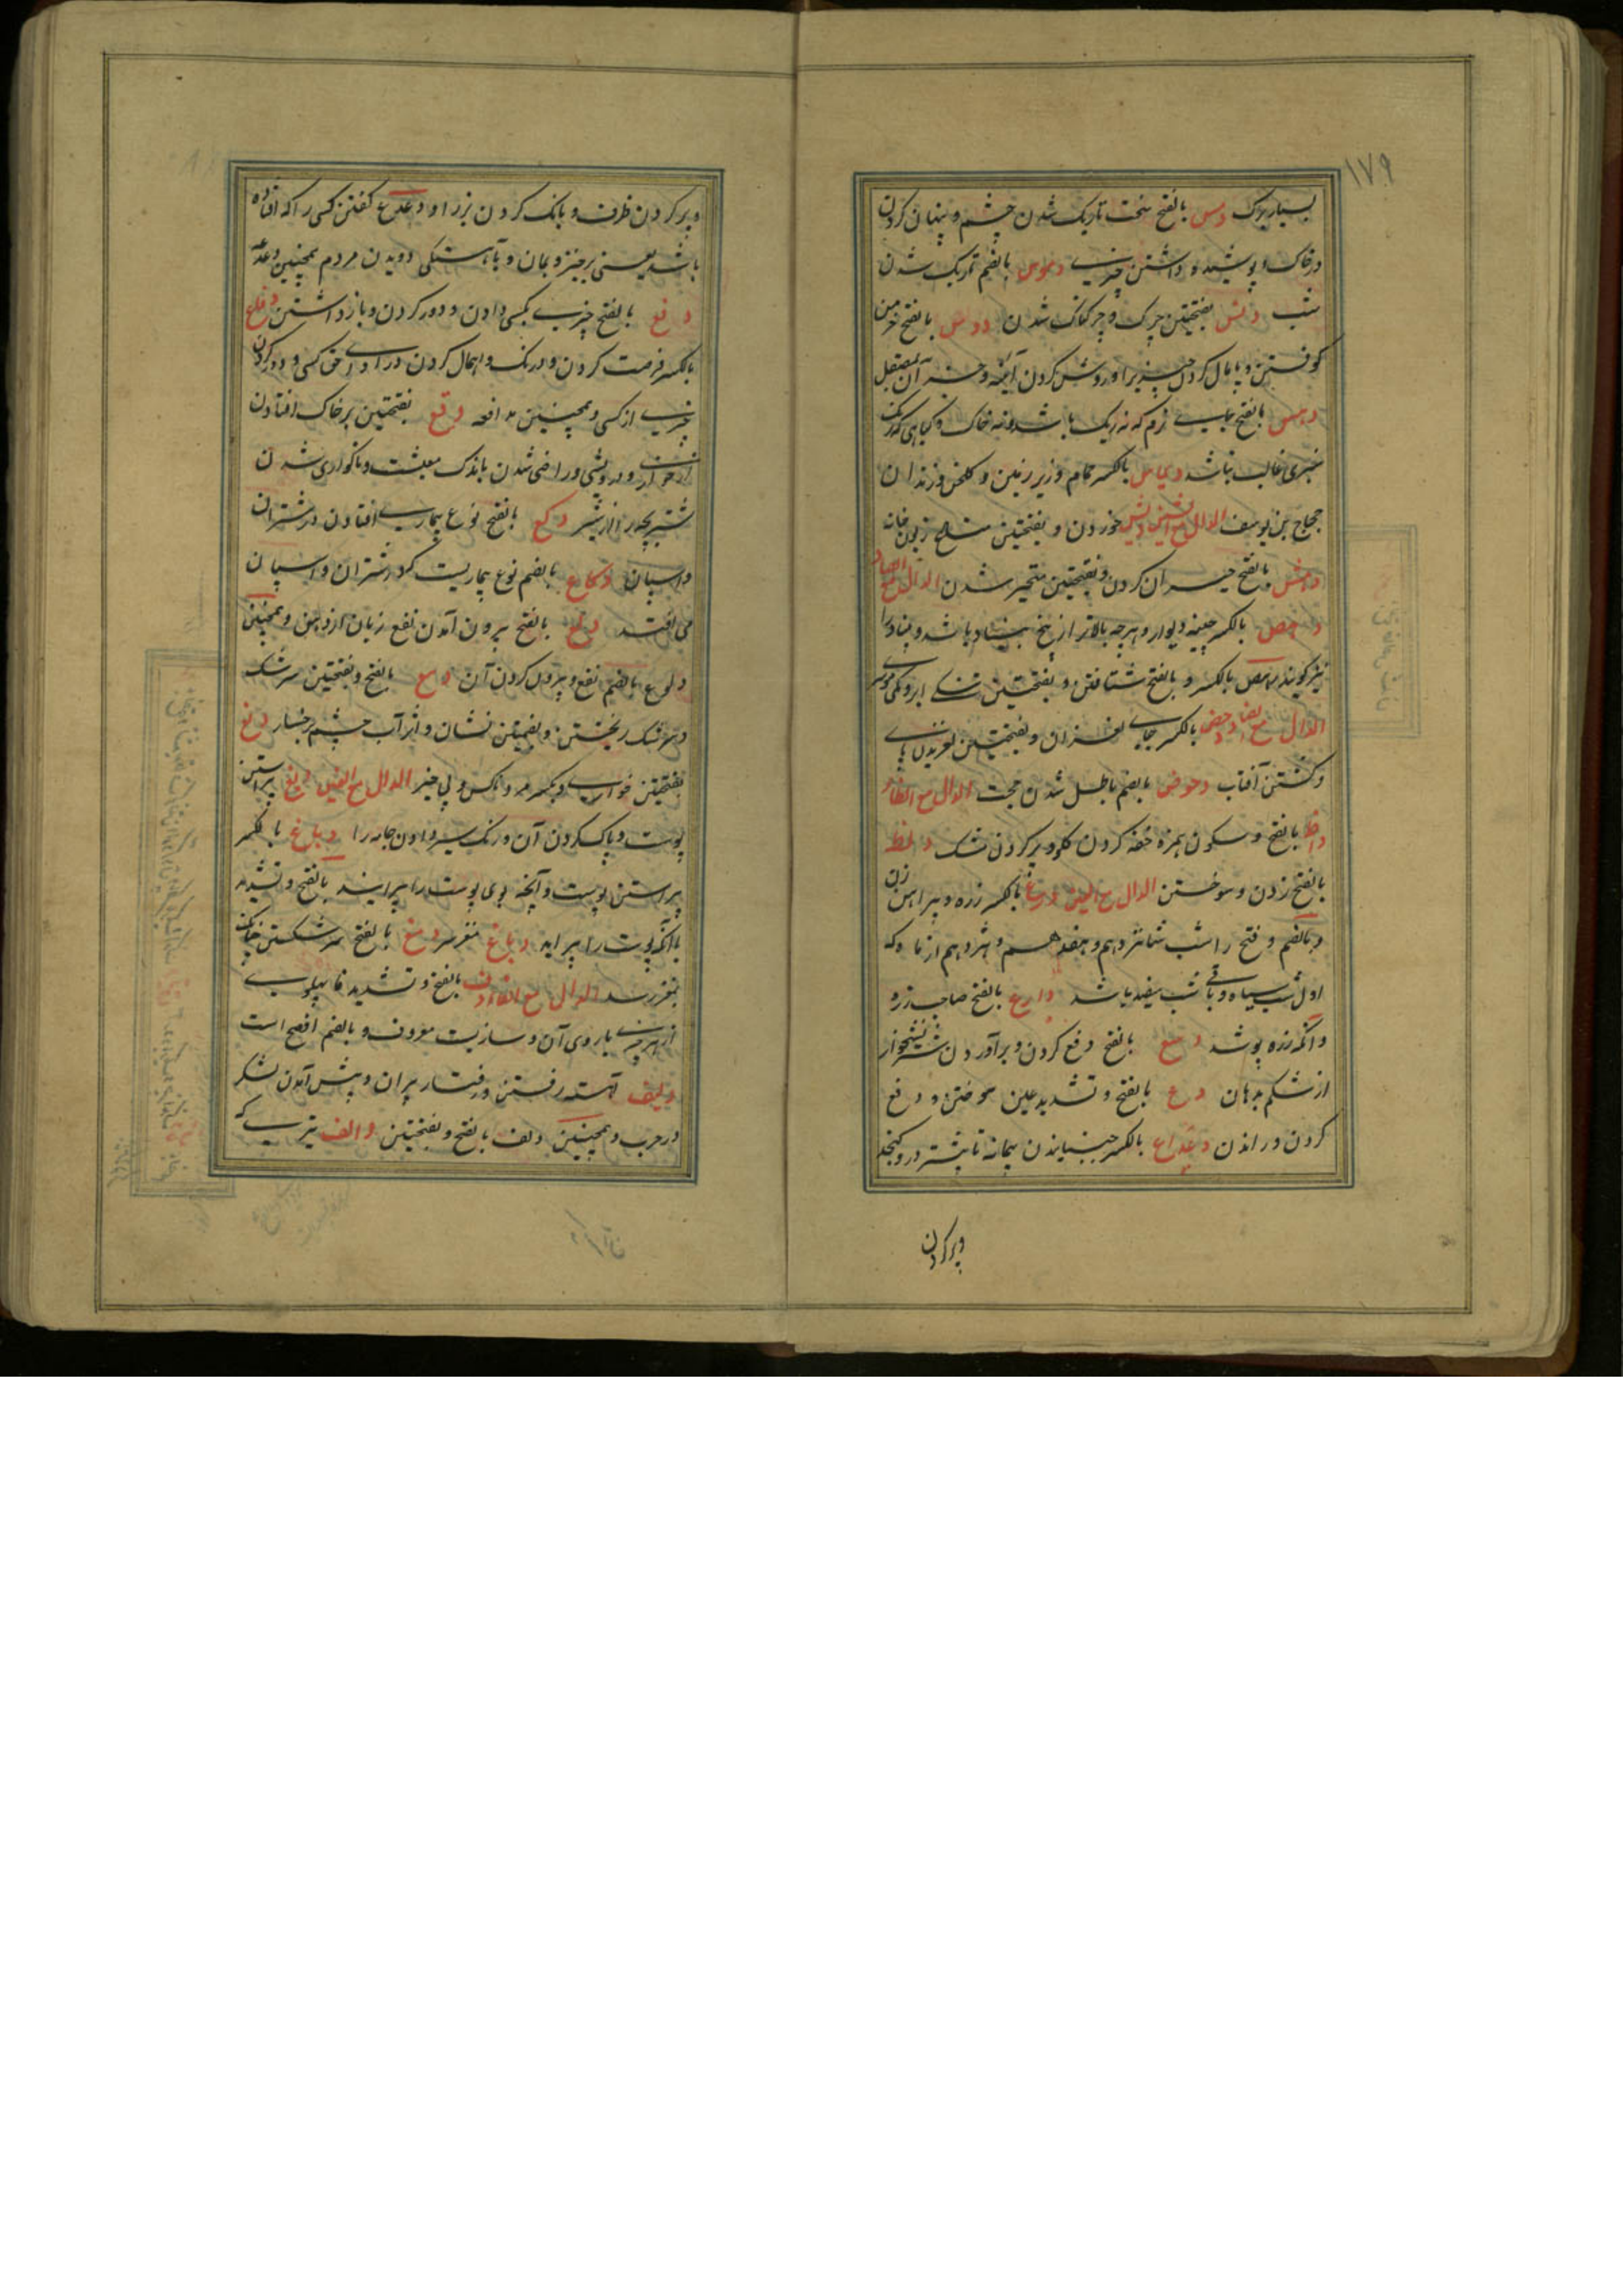 ۱۷۹
بسیار بزرگ دمس بالفتح سخت تاریک شدن چشم و پنهان کردن
در خاک و پوشیده داشتن چیزی دموس بالضم تاریک شدن
شب دنس بفتحتین چرک و چرکناک شدن دوس بالفتح خرمن
کوفتن و پامال کردن چیزیرا و روشن کردن آئینه و جز آن بمصقل
دهس بالفتح جای نرم که نه ریک باشد و نه خاک و کیاهی که رنک
سبزی غالب نباشد دیماس بالکسر حمام و زیر زمین و کلخن و زندان
حجاج بن یوسف الدال مع الشین خوردن و بفتحتین
دهش بالفتح حیران کردن و بفتحتین متحیر شدن الدال مع الصاد
دعص بالکسر چینه دیوار و هرچه بالاتر از بیخ بنیاد باشد و بنیاد را
نیز کویند بالکسر و بالفتح شتافتن و بفتحتین تنکی ابرو و کمی موی
الدال مع الضاد دحض بالکسر جای لغزان و بفتحتین لغزیدن پای
و کشتن آفتاب دحوض بالضم باطل شدن حجت الدال مع الظاء
داظ بالفتح و سکون همزه خفه کردن کلو و پر کردن مشک دلظ
بالفتح زدن و سوختن الدال مع العین درع بالکسر زره و پیراهن زن
و بالضم و فتح را شب شانزدهم و هفدهم و هژدهم از ماه که
اول شب سیاه و باقی شب سفید باشد دارع بالفتح صاحب زره
و آنکه زره پوشد دسع بالفتح دفع کردن و برآوردن شتر نشخوار
از شکم بدهان دع بالفتح و تشدید عین سوختن و دفع
کردن و راندن دعداع بالکسر جنبانیدن پیمانه تا بیشتر در و کنجد
و پر کردن
و پر کردن ظرف و بانک کردن بز را و دعدع کفتن کسی را که افتاده
باشد یعنی برخیز و بمان و باهستکی دویدن مردم همچنین
دفع بالفتح چیزی بکسی دادن و دور کردن و باز داشتن دفاع
بالکسر فرصت کردن و درنک و اهمال کردن در ادای حق کسی و دور کردن
چیزی از کسی و همچنین مدافعه دقع بفتحتین بر خاک افتادن
از خواری و درویشی و راضی شدن باندک معیشت و ناکواری شدن
شتر بچه را از شیر دکع بالفتح نوع بیماری افتادن در شتران
و اسپان دکاع بالضم نوع بیماریست که در شتران و اسپان
می افتد دلع بالفتح بیرون آمدن نفع زبان از دهن و همچنین
دلوع بالضم نفع و بیرون کردن آن دمع بالفتح و بفتحتین سرشک
و سرشک ریختن و بضمتین نشان و اثر آب چشم بر رخسار دنع
بفتحتین خواری و بکسر مرد ناکس و بی خیر الدال مع الغین دبغ پیراستن
پوست و پاک کردن آن و رنک سیر دادن جامه را دباغ بالکسر
پیراستن پوست و آنچه بوی پوست را پیرایند بالفتح و تشدید
با آنکه پوست را پیراید دماغ مغز سر دمغ بالفتح سر شکستن چنانکه
بمغز رسد الدال مع الفاء دف بالفتح و تشدید فا پهلوی
از هر چیزی یا روی آن و سازیست معروف و بالضم افصح است
دلیف آهسته رفتن و رفتار پیران و پیش آمدن لشکر
در حرب و همچنین دلف بالفتح و بفتحتین دالف تیری که